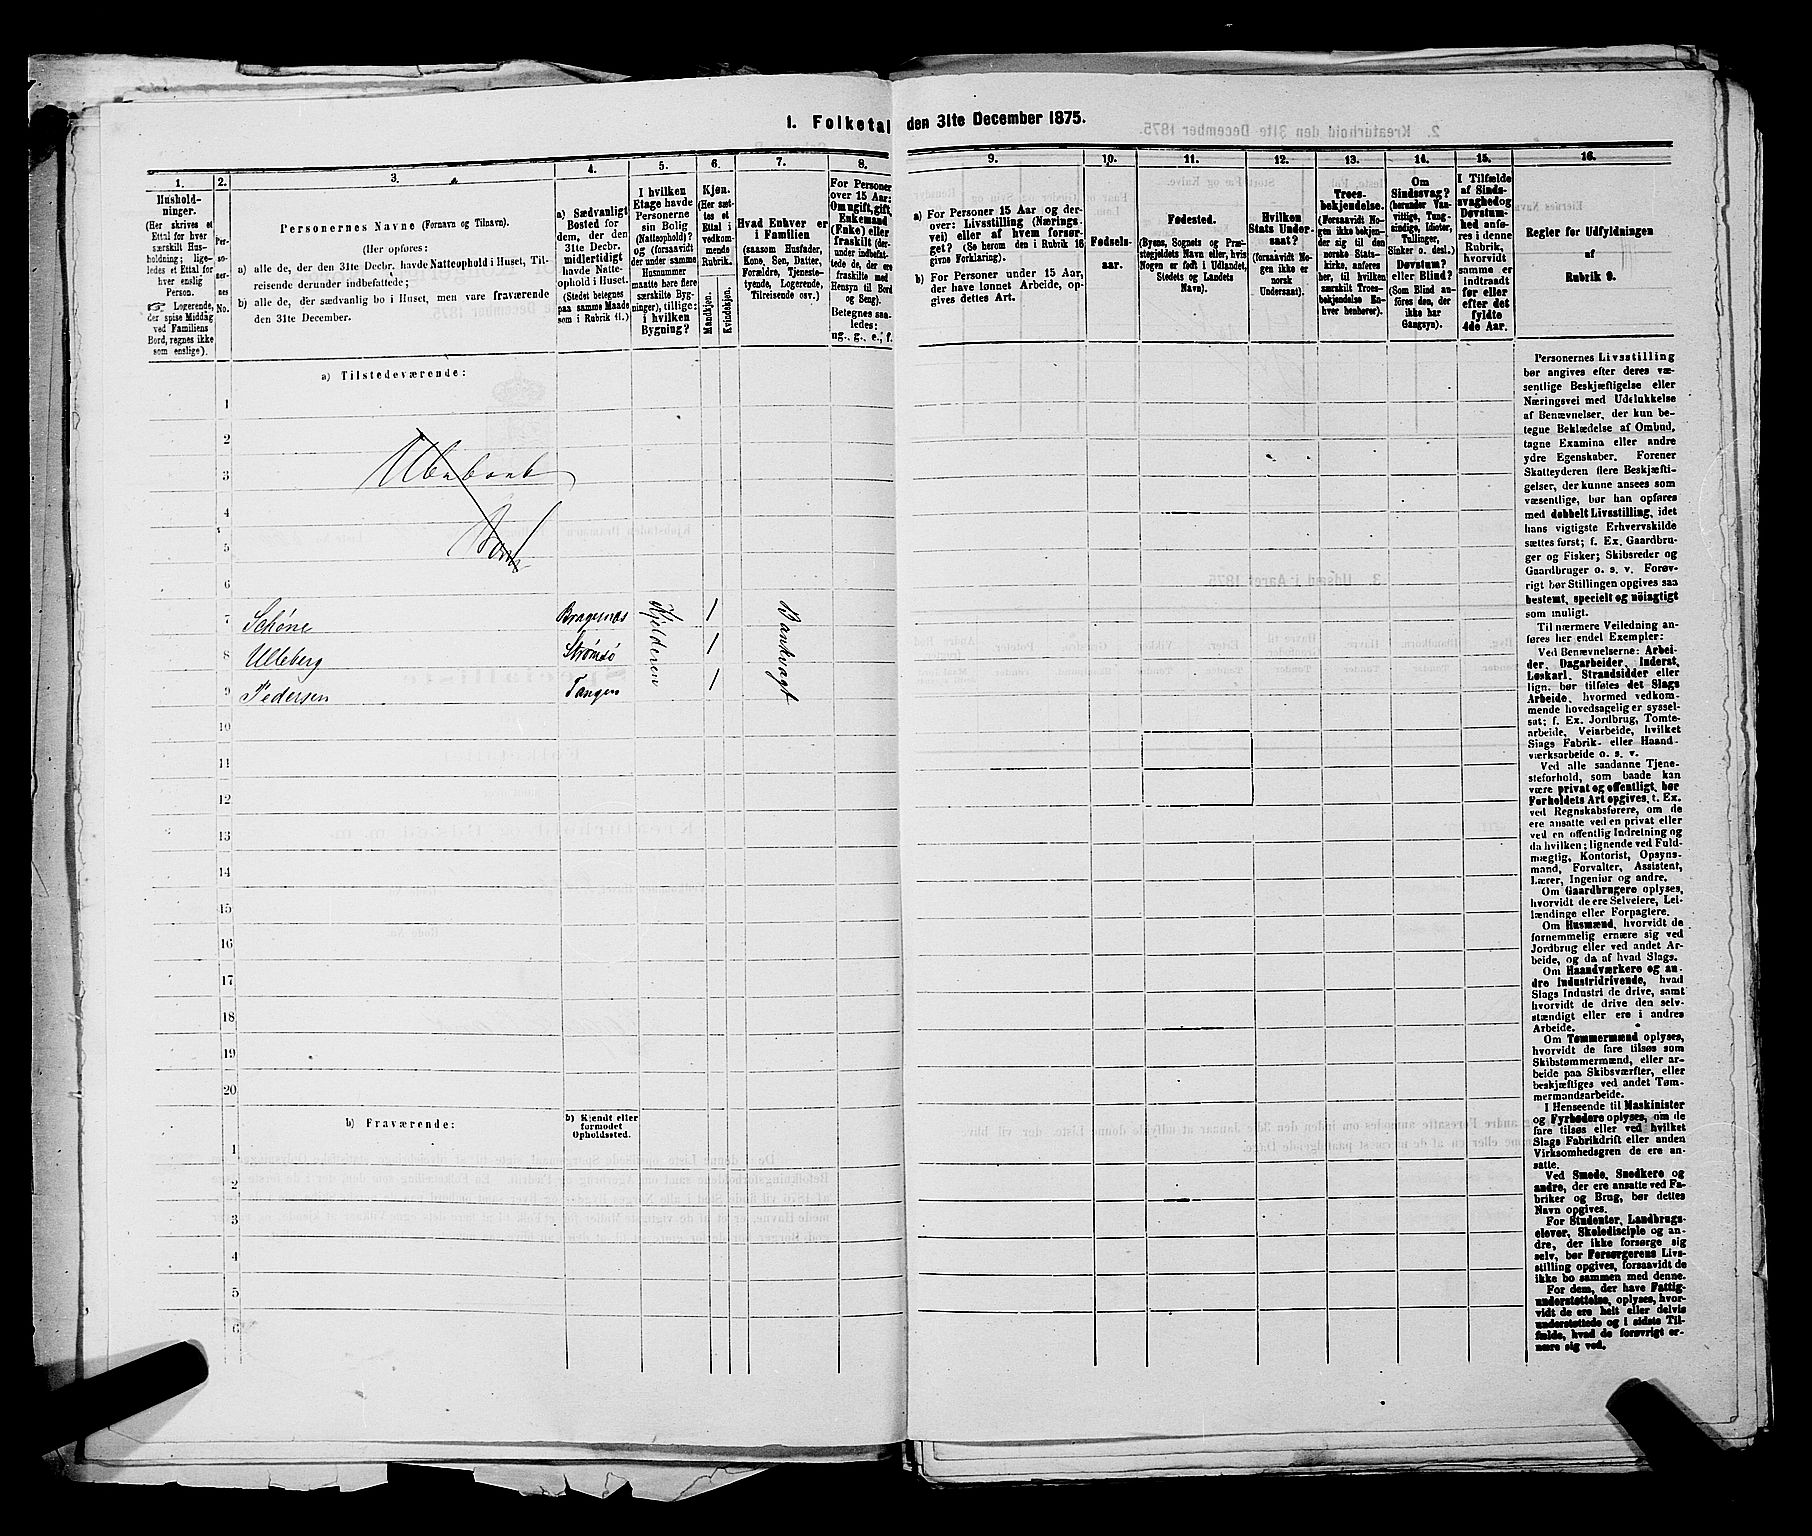 1. Folketal den 31te December 1875.
1.
Hushold-
ninger.
(Her skrives et
Ettal for hver
særskilt Hus-
holdning; lige-
ledes et Ettal for
hver enslig
Person.
Logerende,
der spise Middag
ved Familiens
Bord, regnes ikke
som enslige).
2.
Per-
so-
ner-
nes
No.
3.
Personernes Navne (Fornavn og Tilnavn).
(Her opføres:
a) alle de, der den 31te Decbr. havde Natteophold i Huset, Til-
reisende derunder indbefattede;
b) alle de, der sædvanlig bo i Huset, men vare fraværende
den 31te December.
4.
a) Sædvanligt
Bosted for
dem, der den
31te Decbr.
midlertidigt
havde Natte-
ophold i Huset.
(Stedet betegnes
paa samme Maade
som i Rubrik 11.)
5.
I hvilken
Etage havde
Personerne
sin Bolig
(Natteophold)?
og (forsaavidt
der under samme
Husnummer
maatte høre flere
særskilte Byg-
ninger), tillige:
i hvilken
Bygning?
6.
Kjøn.
(Her sæt-
tes et
Ettal i
vedkom-
mende
Rubrik.
Mandkjøn.
Kvindekjøn.
7.
Hvad Enhver er
i Familien
(saasom Husfader,
Kone, Søn, Datter,
Forældre, Tjeneste-
tyende, Logerende,
Tilreisende osv.)
8.
For Personer
over 15 Aar:
Om ugift, gift,
Enkemand
(Enke) eller
fraskilt (der-
under indbefat-
tede de, der ere
fraskilte med
Hensyn til Bord
og Seng).
Betegnes saa-
ledes:
ug., g., e., f.
9.
a) For Personer 15 Aar og der-
over: Livsstilling (Nærings-
vei) eller af hvem forsør-
get? (Se herom den i Rubrik 16
givne Forklaring).
b) For Personer under 15 Aar,
der have lønnet Arbeide, op-
gives dettes Art.
10.
Fødsels-
aar.
11.
Fødested.
(Byens, Sognets og Præ-
stegjeldets Navn eller, hvis
Nogen er født i Udlandet,
Stedets og Landets
Navn).
12.
Hvilken
Stats Under-
saat?
(forsaavidt No-
gen ikke er
norsk
Undersaat).
13.
Troes-
bekjendelse.
(Forsaavidt No-
gen ikke bekjen-
der sig til den
norske Stats-
kirke, anføres
her, til hvilken
særskilt Troes-
bekjendelse En-
hver henhører).
14.
Om
Sindssvag?
(herunder Van-
vittige, Tung-
sindige, Idioter,
Tullinger,
Sinker o. desl.)
Døvstum?
eller Blind?
(Som Blind an-
føres den, der
ikke har
Gangsyn).
15.
I Tilfælde
af Sinds-
svaghed og
Døvstum-
hed anfø-
res i denne
Rubrik,
hvorvidt
samme er
indtraadt
før eller
efter det
fyldte
4de Aar.
16.
Regler for Udfyldningen
af
Rubrik 9.
a) Tilstedeværende:
1
2
3
4
5
6
7 Schöne Bragernæs Kjelderen 1 Bankvagt
8 Ulleberg Strømsö 1
9 Pedersen Tangen 1
10
11
12
13
14
15
16
17
18
19
20
b) Fraværende:
b) Kjendt eller
formodet
Opholdssted.
1
2
3
4
5
6
Personernes Livsstilling
bør angives efter deres væ-
sentlige Beskjæftigelse eller
Næringsvei med Udelukkelse
af Benævnelser, der kun be-
tegne Beklædelse af Ombud,
tagne Examina eller andre
ydre Egenskaber. Forener
Skatteyderen flere Beskjæfti-
gelser, der kunne ansees som
væsentlige, bør han opføres
med dobbelt Livsstilling, idet
hans vigtigste Erhvervskilde
sættes først; f. Ex. Gaardbru-
ger og Fisker; Skibsreder og
Gaardbruger o. s. v. Forøv-
rigt bør Stillingen opgives saa
bestemt, specielt og nöiagtigt
som muligt.
Til nærmere Veiledning an-
føres her endel Exempler:
Ved Benævnelserne: Arbei-
der, Dagarbeider, Inderst,
Løskarl, Strandsidder eller
lign. bør tilføies det Slags
Arbeide, hvormed vedkom-
mende hovedsagelig er syssel-
sat; f. Ex. Jordbrug, Tomte-
arbeide, Veiarbeide, hvilket
Slags Fabrik- eller Haand-
værksarbeide o. s. v.
Ved alle saadanne Tjene-
steforhold, som baade kan
være privat og offentligt, bør
Forholdets Art opgives, t. Ex.
ved Regnskabsførere, om de
ere ansatte ved en privat eller
ved en offentlig Indretning og
da hvilken; lignende ved Fuld-
mægtig, Kontorist, Opsyns-
mand, Forvalter, Assistent,
Lærer, Ingeniør og andre.
Om Gaardbrugere oplyses,
hvorvidt de ere Selveiere, Lei-
lændinge eller Forpagtere.
Om Husmænd, hvorvidt de
fornemmelig ernære sig ved
Jordbrug eller ved andet Ar-
beide, og da af hvad Slags.
Om Haandværkere og an-
dre Industridrivende, hvad
Slags Industri de drive, samt
hvorvidt de drive den selv-
stændigt eller ere i andres
Arbeide.
Om Tømmermænd oplyses,
hvorvidt de fare tilsøs som
Skibstømmermænd, eller ar-
beide paa Skibsværfter, eller
beskjæftiges ved andet Tøm-
mermandsarbeide.
I Henseende til Maskinister
og Fyrbødere oplyses, om de
fare tilsøs eller ved hvilket
Slags Fabrikdrift eller anden
Virksomhedsgren de ere an-
satte.
Ved Smede, Snedkere og
andre, der ere ansatte ved Fa-
briker og Brug, bør dettes
Navn opgives.
For Studenter, Landbrugs-
elever, Skoledisciple og an-
dre, der ikke forsørge sig
selv, bør Forsørgerens Livs-
stilling opgives, forsaavidt de
ikke bo sammen med denne.
For dem, der have Fattig-
understøttelse, oplyses, hvor-
vidt de ere helt eller delvis
understøttede og i sidste Til-
fælde, hvad de forøvrigt er-
nære sig ved.